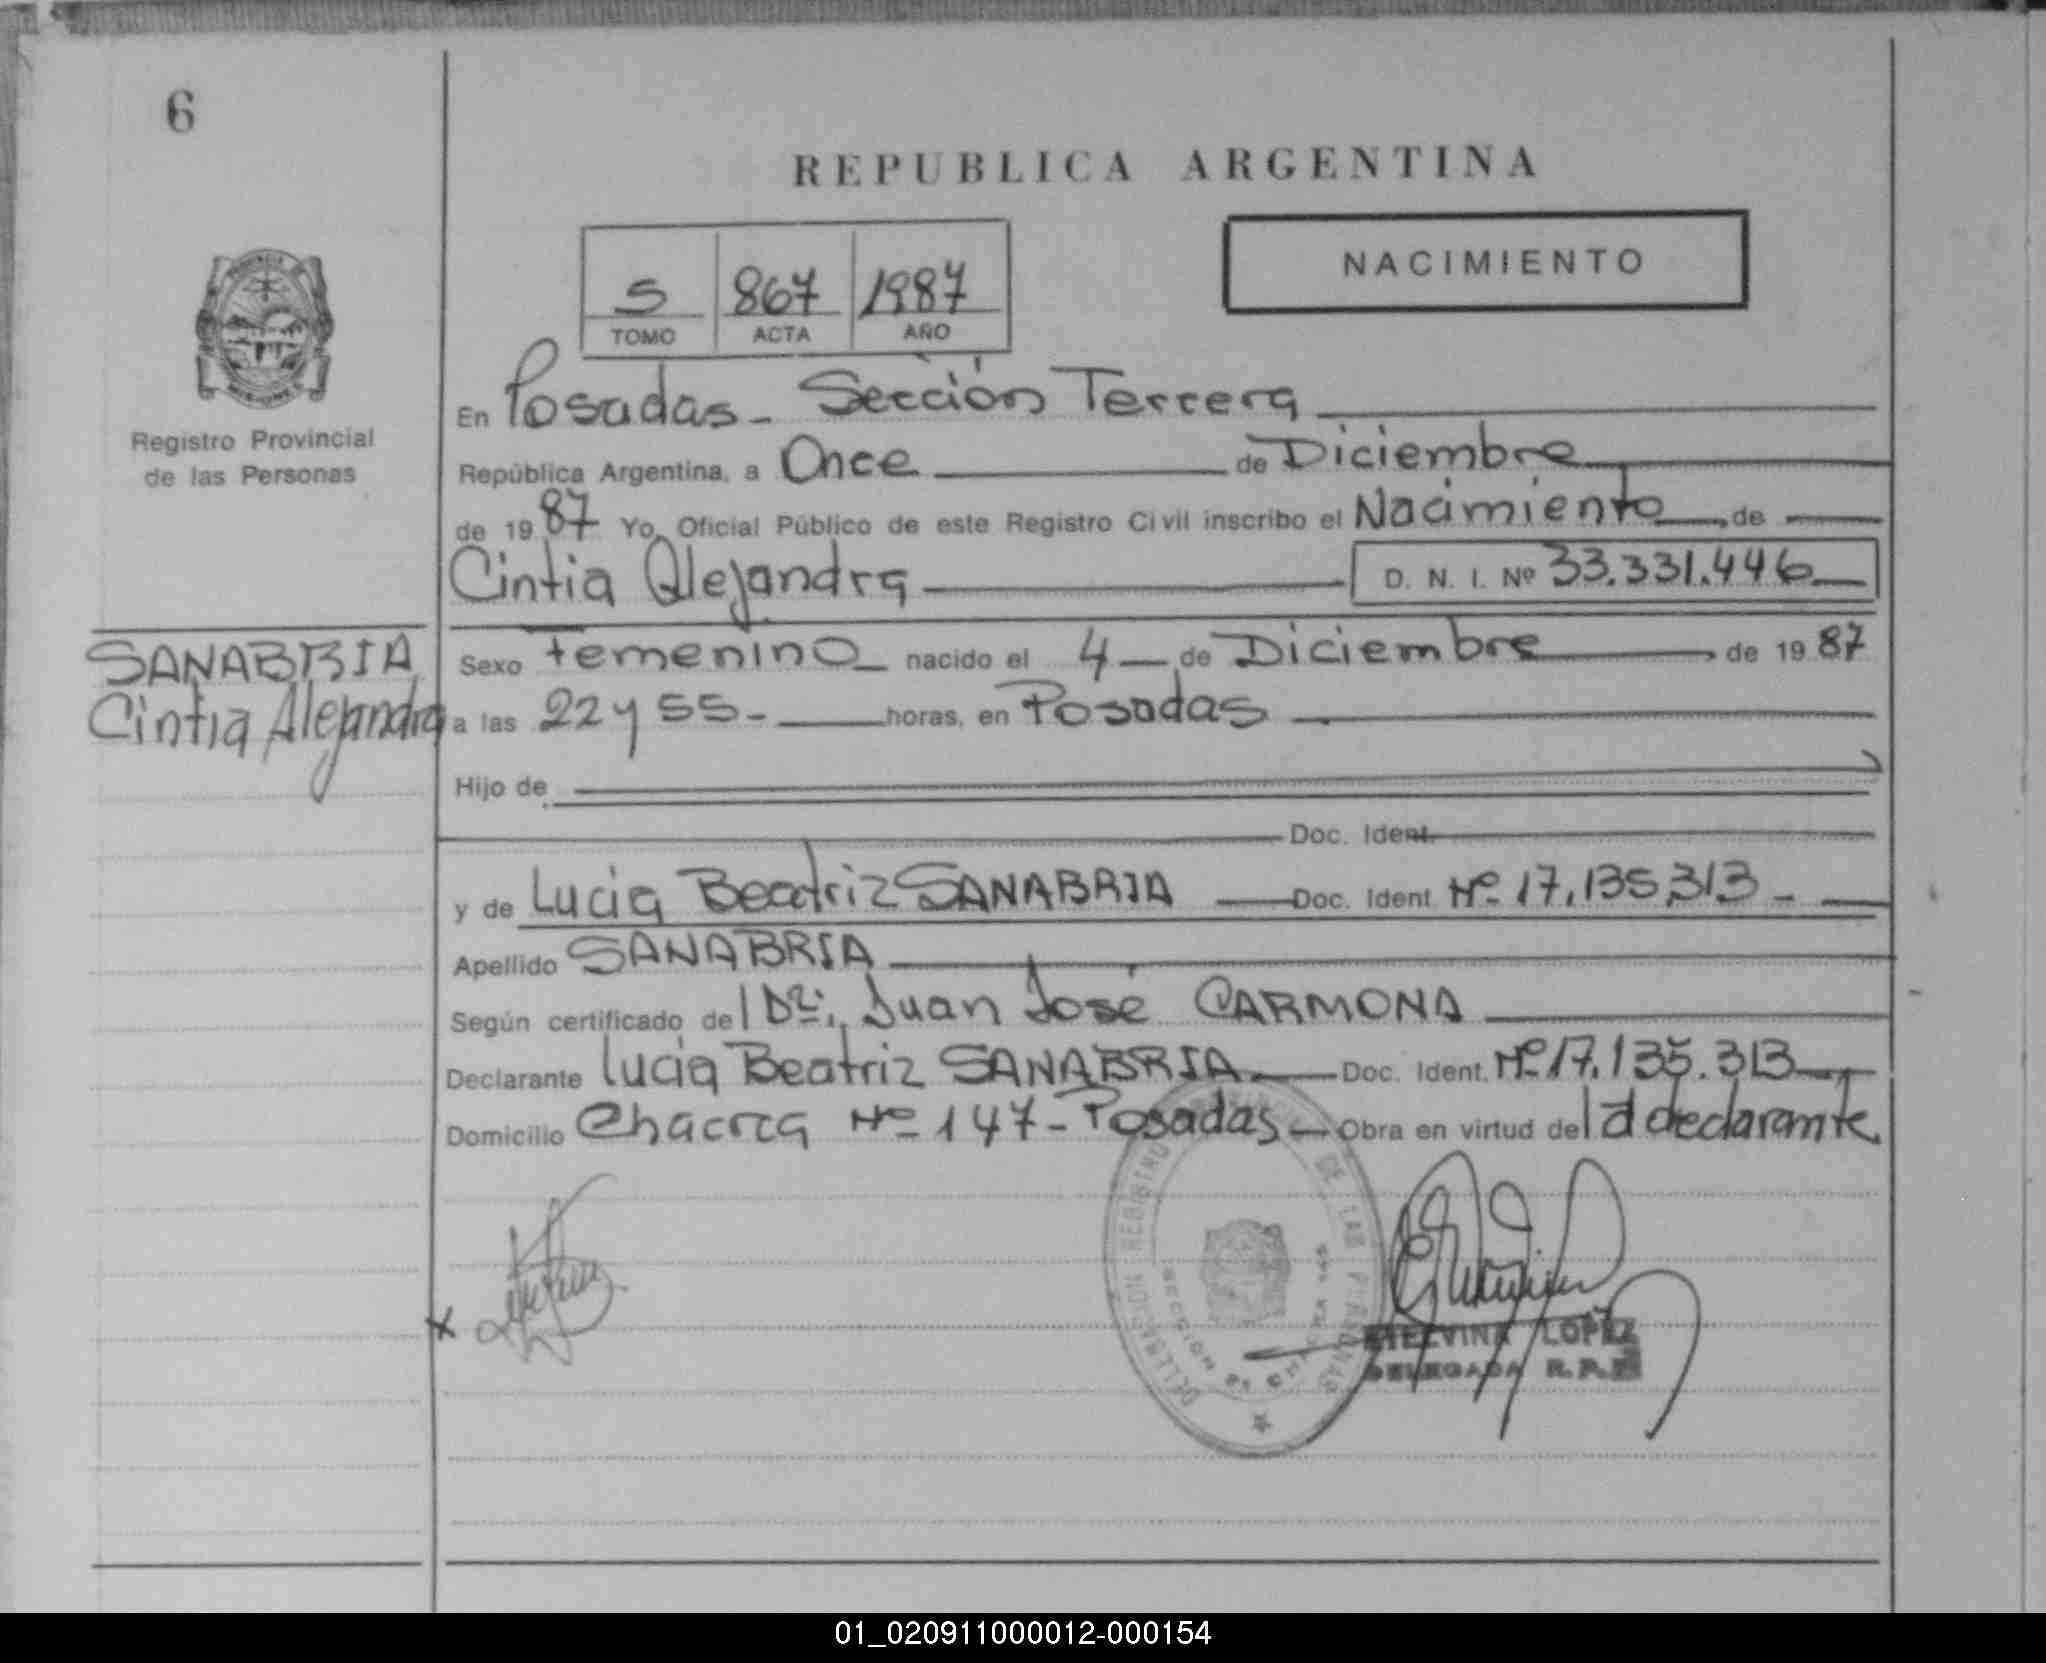 6
REPUBLICA ARGENTINA
NACIMIENTO
5 867 1987
TOMO ACTA AÑO
Registro Provincial
de las Personas
En Posadas - Sección Tercera
República Argentina, a Once de Diciembre
de 1987 Yo, Oficial Público de este Registro Civil inscribo el Nacimiento de
Cintia Alejandra D. N. I. Nº 33.331.446
SANABRIA
Cintia Alejandra
Sexo femenino nacido el 4 de Diciembre de 1987
a las 22 y 55- horas, en Posadas
Hijo de
Doc. Ident.
y de Lucia Beatriz SANABRIA Doc. Ident. Nº 17.135.313-
Apellido SANABRIA
Según certificado del Dr.: Juan José CARMONA
Declarante Lucia Beatriz SANABRIA Doc. Ident. Nº 17.135.313
Domicilio Chacra Nº 147- Posadas Obra en virtud de la declarante
x
DE LAS PERSONAS
ETELVINA LOPEZ
DELEGADA R.P.P.
01_020911000012-000154